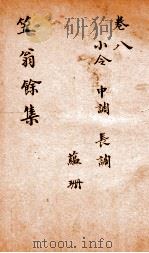 卷八
小令 中調 長調
蘊珊
笠翁餘集
www.duxiu.com
mtoou.info